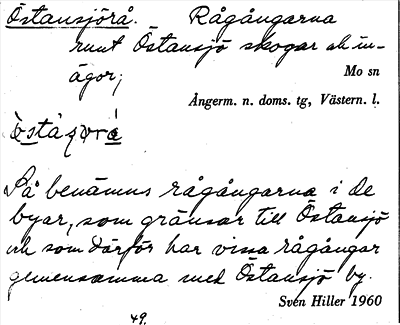 Östansjörå. Rågångarna
runt Östansjö skogar och in-
ägor;
Mo sn
Ångerm. n. doms. tg, Västern. l.
Så benämns rågångarna i de
byar, som gränsar till Östansjö
och som därför har vissa rågångar
gemensamma med Östansjö by.
Sven Hiller 1960
49.